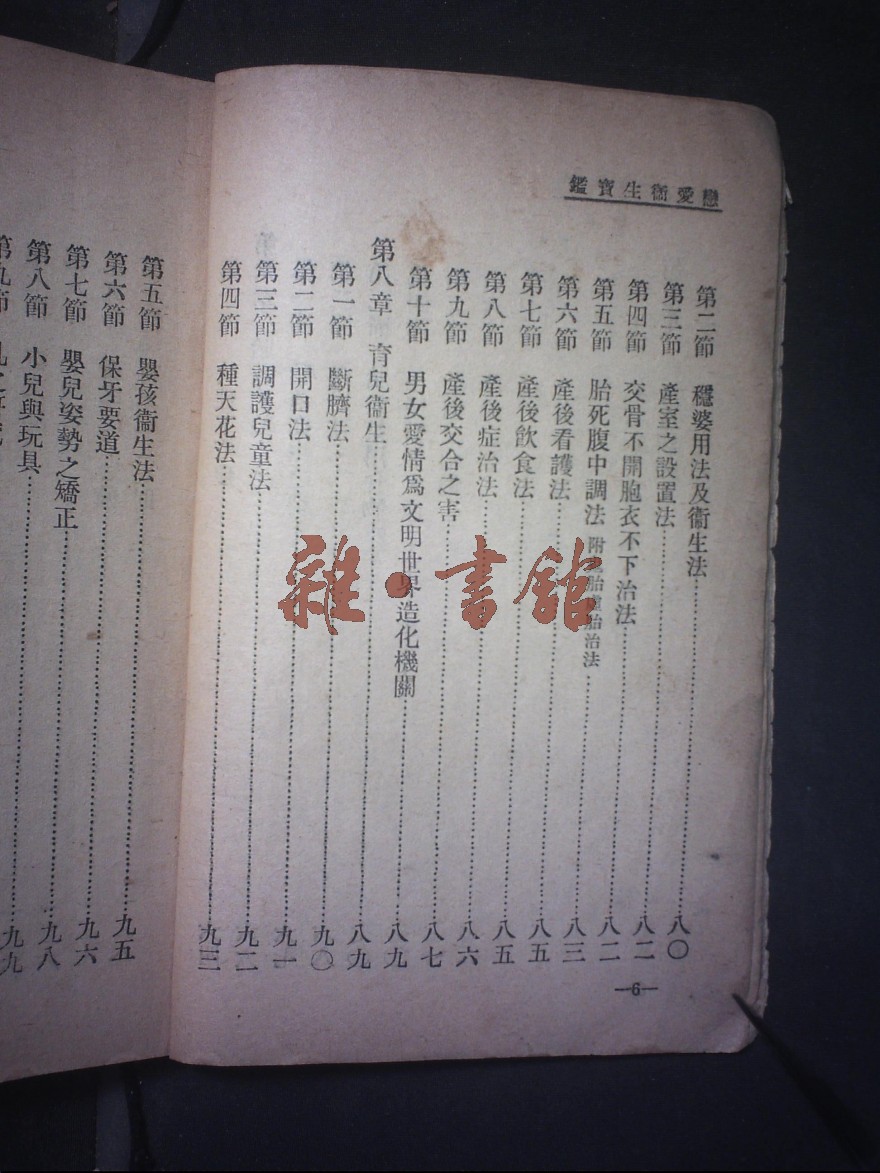 戀愛衞生寶鑑
第二節 穩婆用法及衞生法……八〇
第三節 產室之設置法……八二
第四節 交骨不開胞衣不下治法……八二
第五節 胎死腹中調法 附 胎 胎治法……八三
第六節 產後看護法……八五
第七節 產後飲食法……八五
第八節 產後症治法……八六
第九節 產後交合之害……八七
第十節 男女愛情爲文明世界造化機關……八九
第八章 育兒衞生……八九
第一節 斷臍法……九〇
第二節 開口法……九一
第三節 調護兒童法……九二
第四節 種天花法……九三
—6—
第五節 嬰孩衞生法……九五
第六節 保牙要道……九六
第七節 嬰兒姿勢之矯正……九八
第八節 小兒與玩具……九九
第九節
雜·書館